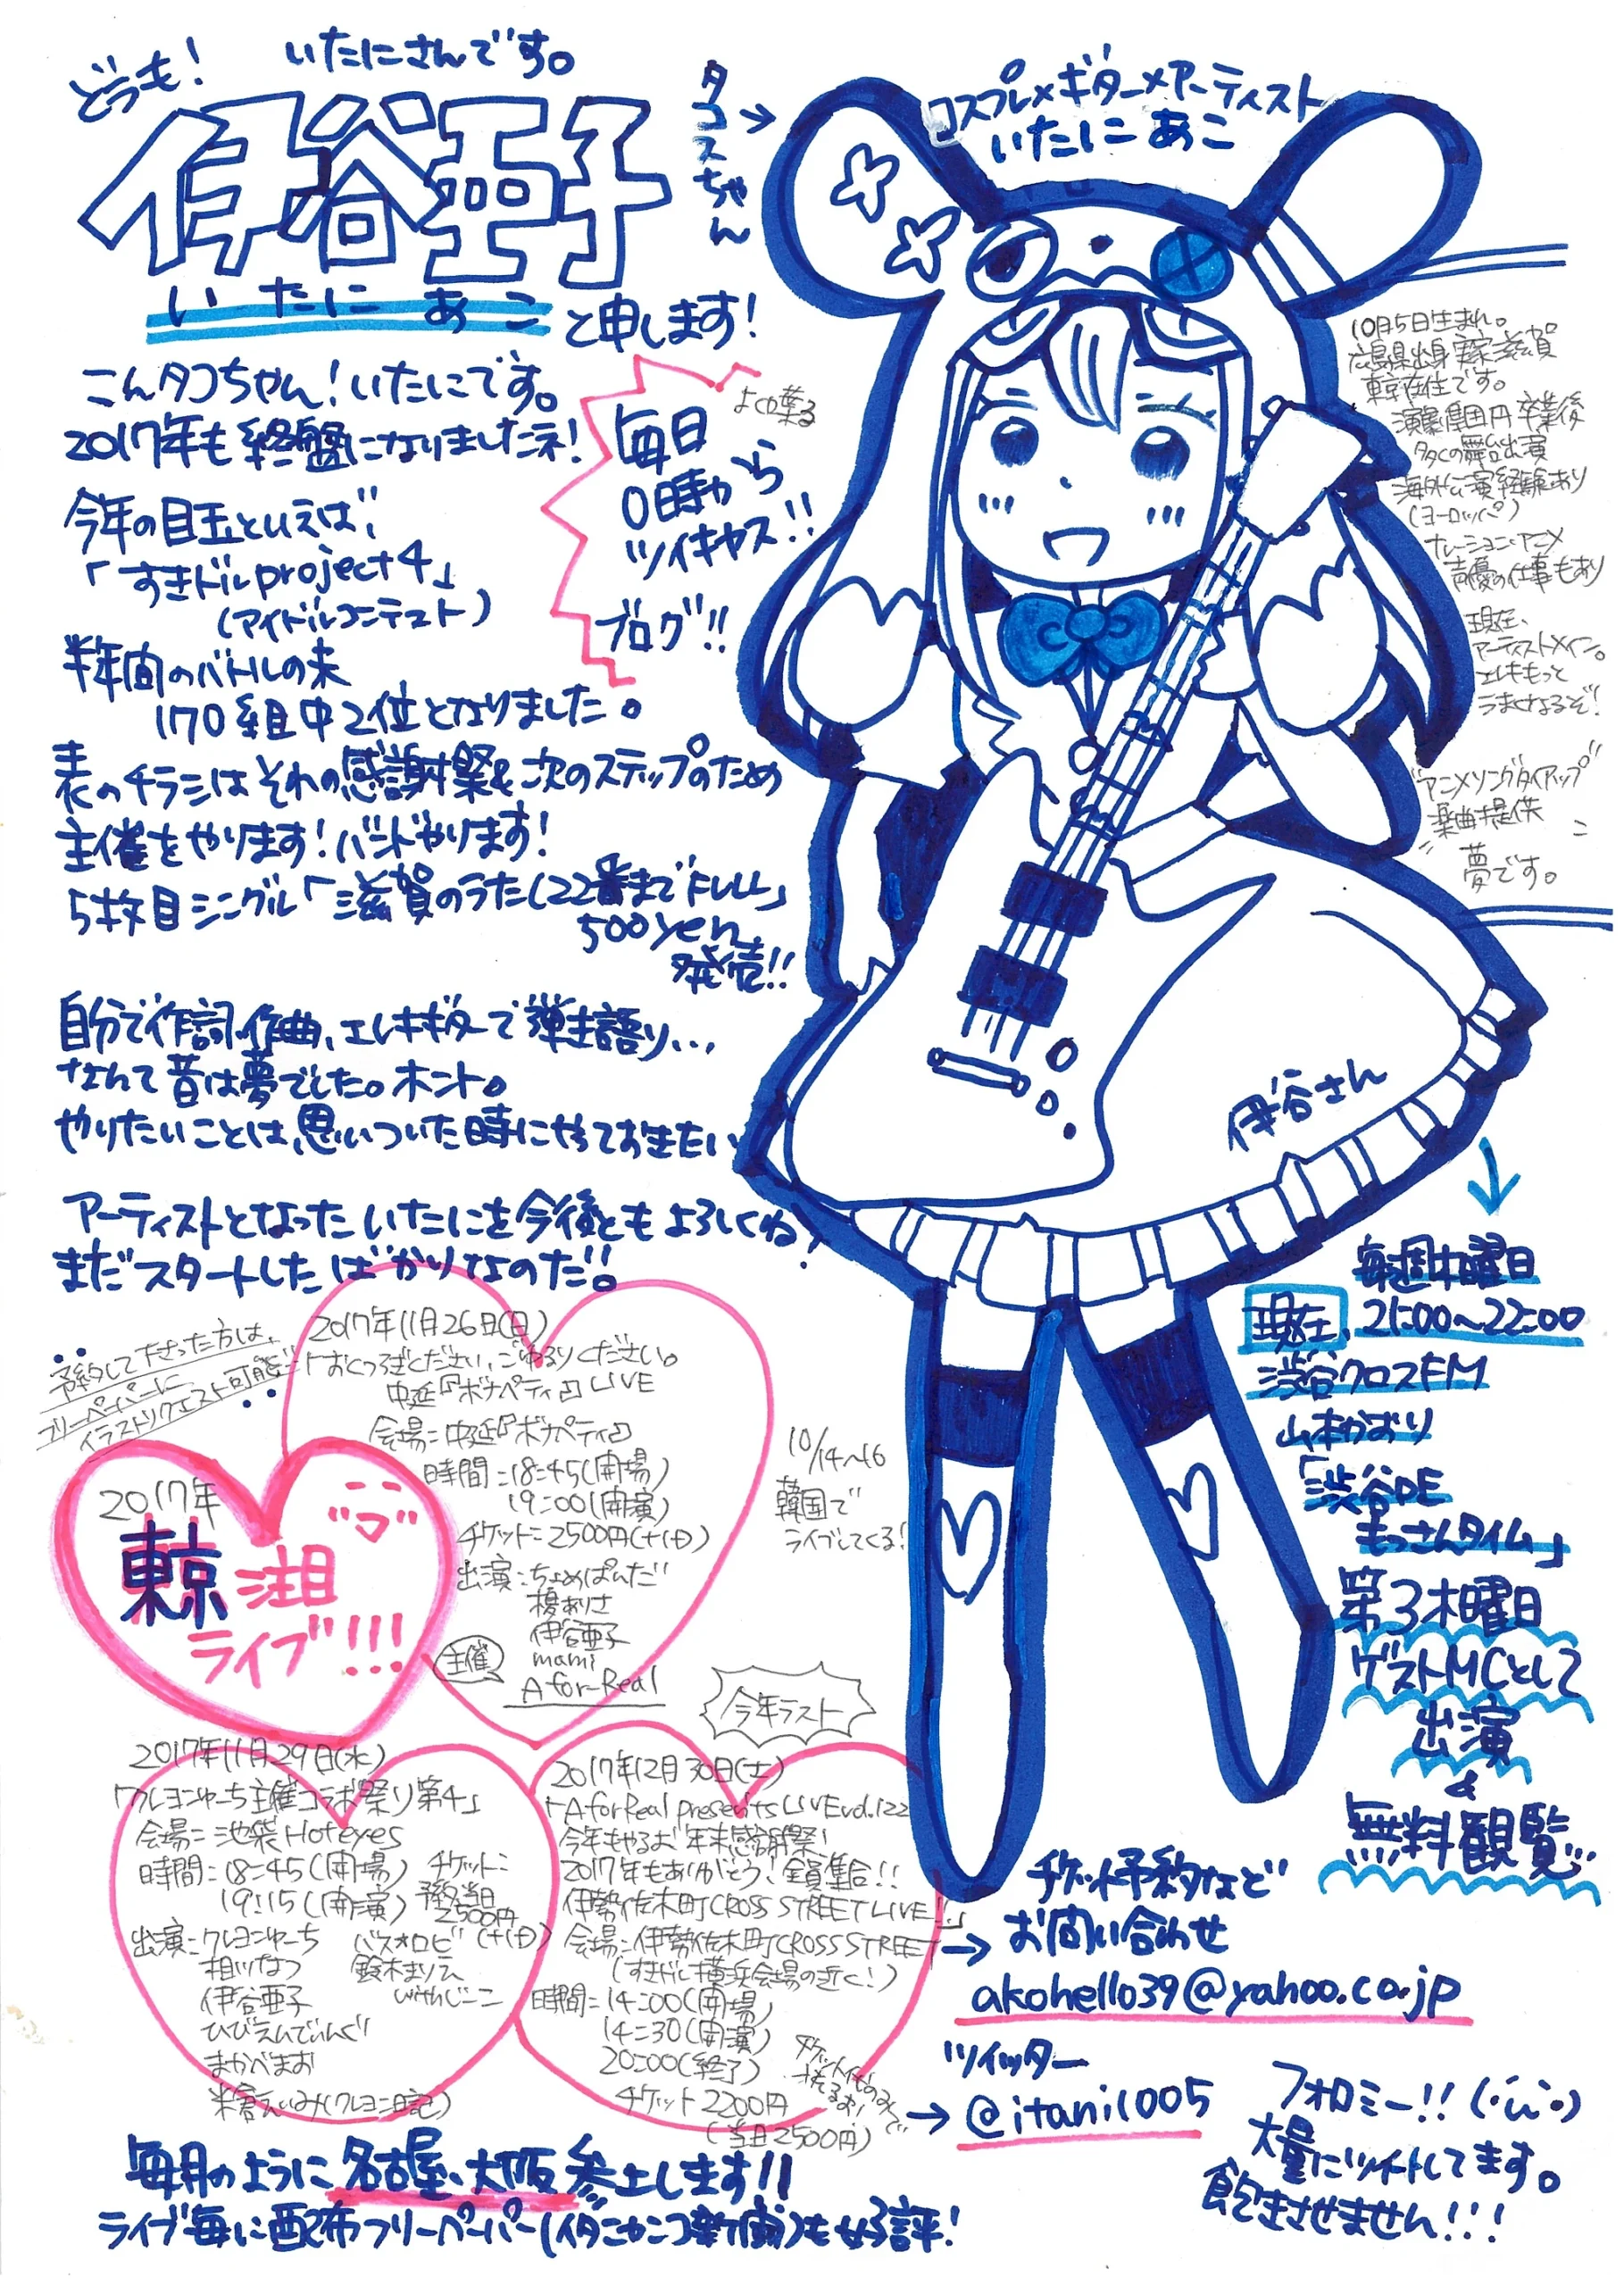 どうも！
いたにさんです。
伊谷亜子
いたに あこ
と申します！
タコスちゃん→
コスプレ×ギター×アーティスト
いたに あこ
こんタコちゃん！いたにです。
2017年も終盤になりましたネ！
今年の目玉といえば、
「すきドルproject4」
(アイドルコンテスト)
半年間のバトルの末
170組中2位となりました。
表のチラシはそれの感謝祭&次のステップのため
主催をやります！バンドやります！
5枚目シングル「滋賀のうた(22番までFULL)」
500yen
発売!!
よく喋る
毎日
0時から
ツイキャス!!
ブログ!!
自分で作詞、作曲、エレキギターで弾き語り...
なんて昔は夢でした。ホント。
やりたいことは、思いついた時にやっておきたい
アーティストとなったいたにを今後ともよろしくね！
まだスタートしたばかりなのだ!!
10月5日生まれ。
広島県出身 実家滋賀
東京在住です。
演劇集団円卒業後
多くの舞台出演
海外公演経験あり
(ヨーロッパ)
ナレーション・アニメ
声優の仕事もあり
現在、
アーティストメイン。
エレキもっと
うまくなるぞ！
"アニメソングタイアップ"
"楽曲提供"
夢です。
伊谷さん
↓
毎週木曜日
現在、21:00〜22:00
渋谷クロスFM
山本かおり
「渋谷DE
もっさんタイム」
第3木曜日
ゲストMCとして
出演
&
無料観覧
予約して下さった方は、
フリーペーパーに
イラストリクエスト可能
2017年
東京注目
ライブ!!!
2017年11月26日(日)
「おくつろぎください、ごゆるりください。
中延『ボナペティ』LIVE
会場:中延『ボナペティ』
時間:18:45(開場)
19:00(開演)
チケット:2500円(+1D)
出演:ちょめぱんだ
榎ありさ
伊谷亜子
mami
主催 A for-Real
10/14〜16
韓国で
ライブしてくる！
今年ラスト
2017年11月29日(水)
「クレヨンゆーち主催コラボ祭り第4」
会場:池袋Hoteyes
時間:18:45(開場)
19:15(開演)
チケット:
予約当日
2500円
(+1D)
出演:クレヨンゆーち
相川なつ
伊谷亜子
ひびえんでぃんぐ
まかべまお
米倉えいみ(クレヨン日記)
バス★ロビ
鈴木まりえ
withじーこ
2017年12月30日(土)
「A for Real presents LIVE vol.122
今年もやるお 年末感謝祭！
2017年もありがとう！全員集合!!
伊勢佐木町CROSS STREET LIVE！」
会場:伊勢佐木町CROSS STREET
(すきドル横浜会場の近く！)
時間:14:00(開場)
14:30(開演)
20:00(終了)
チケット2200円
(当日2500円)
チケット予約など
→お問い合わせ
akohello39@yahoo.co.jp
ツイッター
→@itani1005
フォロミー!!
大量にツイートしてます。
飽きさせません!!!
毎月のように名古屋、大阪参上します!!
ライブ毎に配布フリーペーパー(イタニカンコ新聞)も好評！